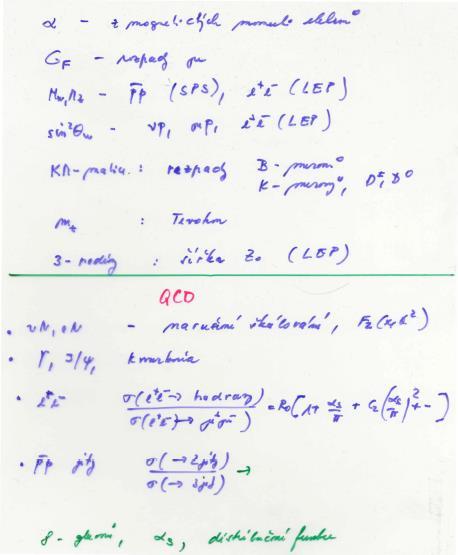 α – z magnetických momentů elektronů
G_F – rozpady μ
M_W, M_Z – p̄p (SPS), e⁺e⁻ (LEP)
sin²Θ_W – νp, μp, e⁺e⁻ (LEP)
KM-matice : rozpady B-mezonů
K-mezonů, D^±, D⁰
m_t : Tevatron
3-rodiny : šířka Z₀ (LEP)
QCD
• νN, eN – narušení škálování, F₂(x, Q²)
• Υ, J/ψ, kvarkonia
• e⁺e⁻ σ(e⁺e⁻→ hadrony) / σ(e⁺e⁻→ μ⁺μ⁻) = R₀[1 + α_s/π + C₂(α_s/π)² + –]
• p̄p jety σ(→2jety) / σ(→3jet) →
8 – gluonů, α_s, distribuční funkce